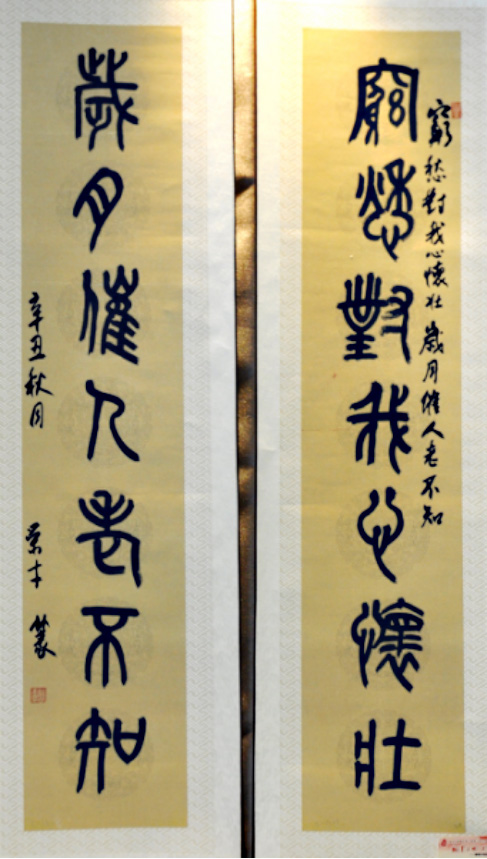 窮愁對我心懷壯
窮愁對我心懷壯 歲月催人老不知
歲月催人老不知
辛丑秋月